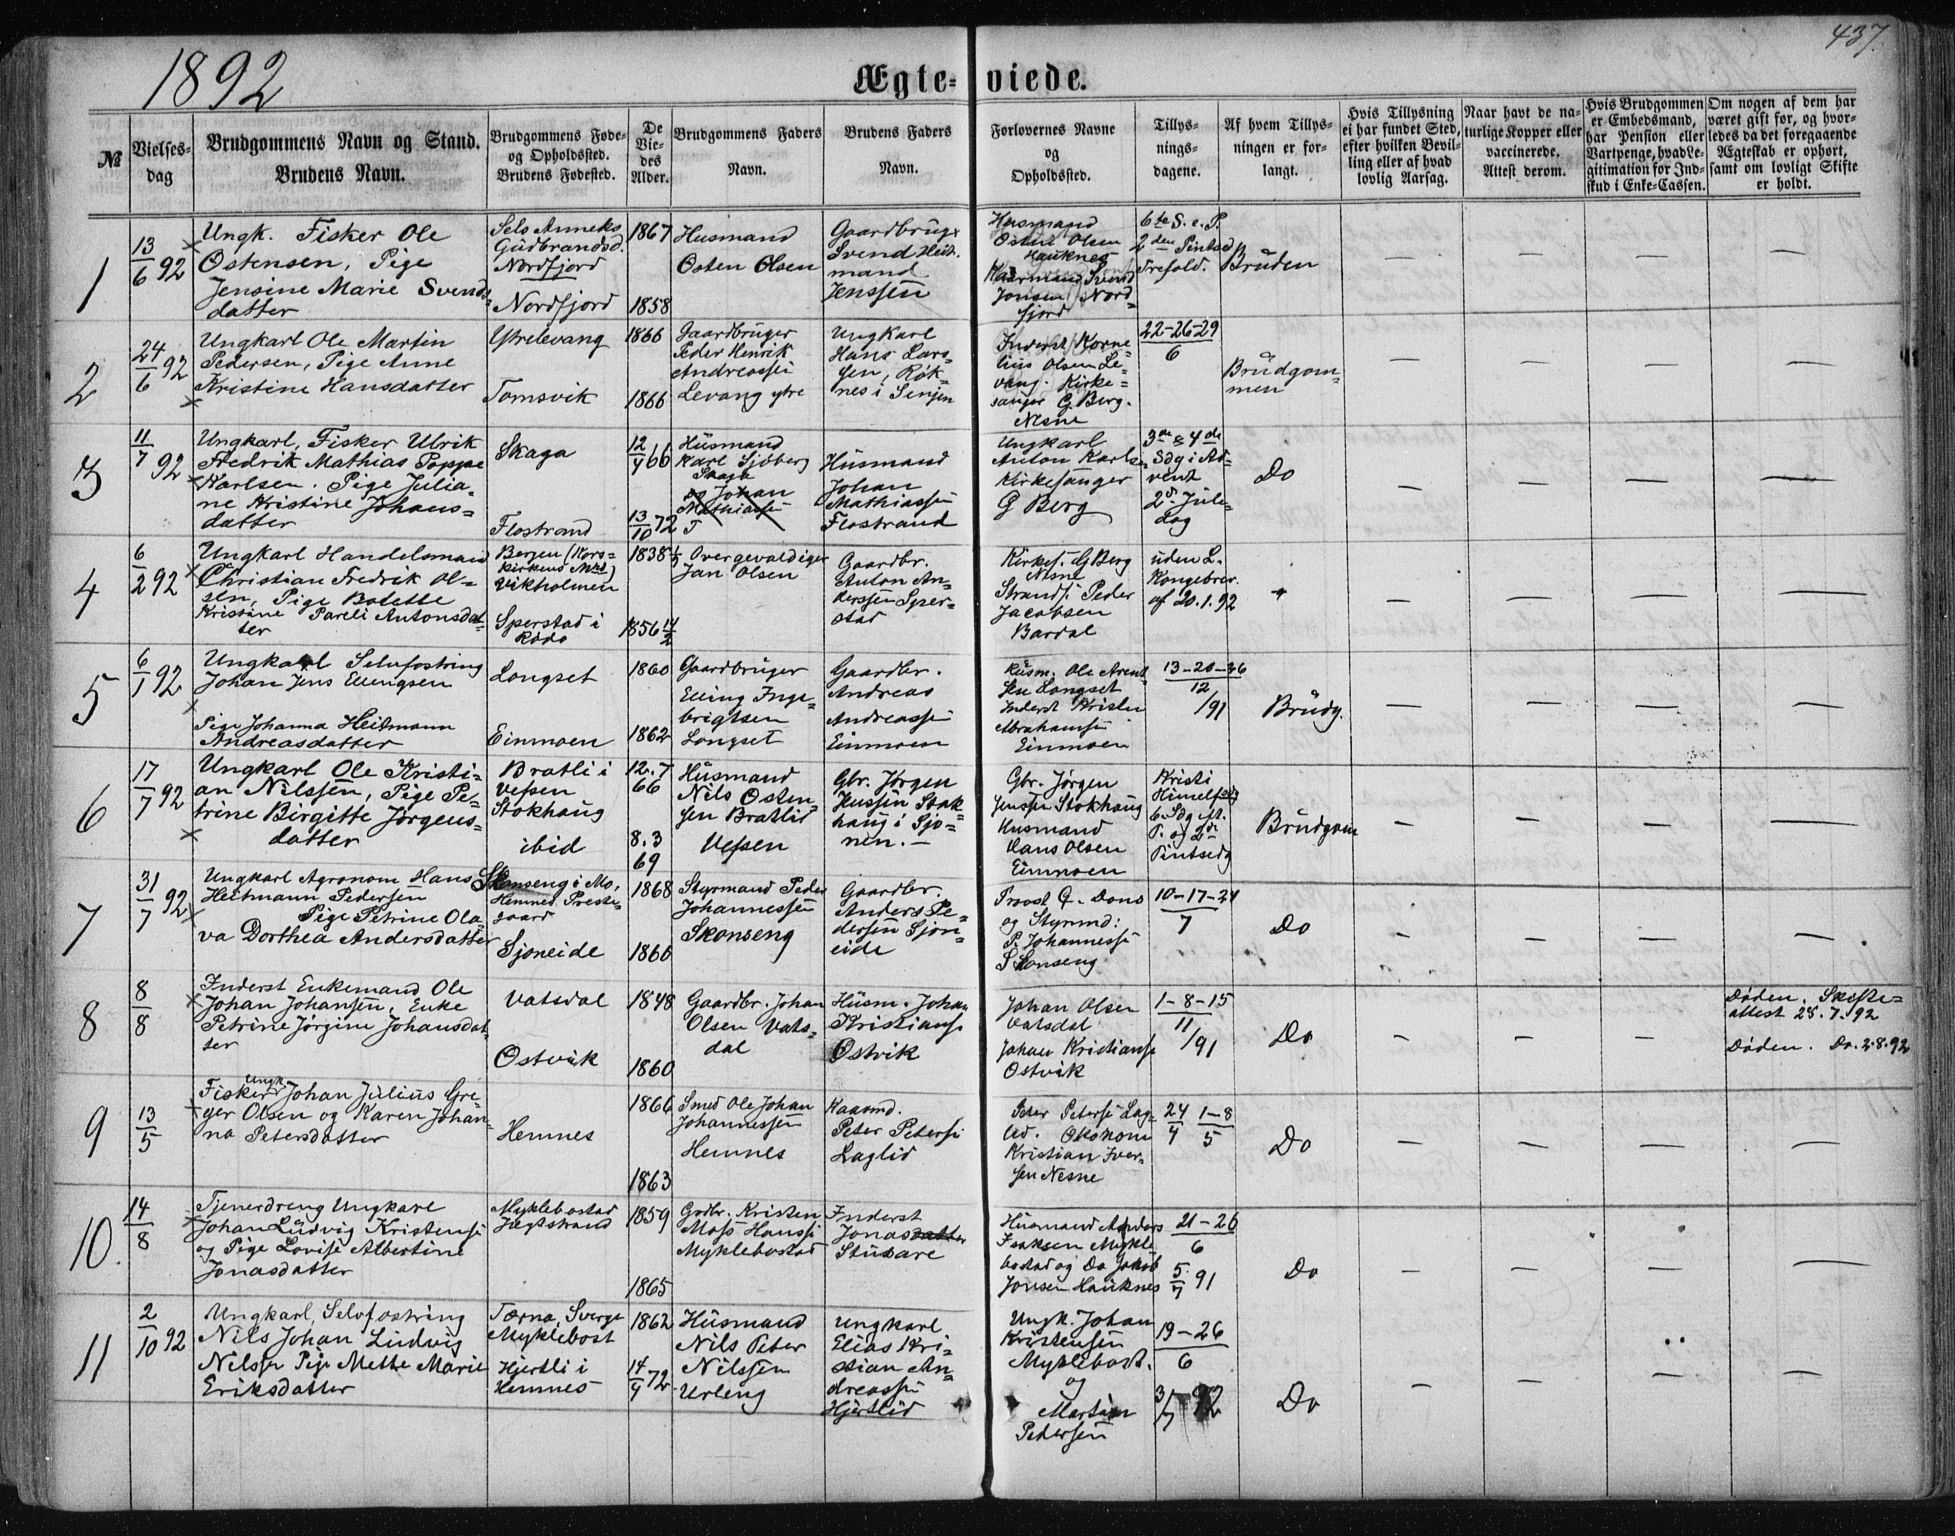 437.
1892
Ægteviede.
№
Vielsesdag
Brudgommens Navn og Stand.
Brudens Navn.
Brudgommens Føde-
og Opholdssted.
Brudens Fødested.
De
Vie-
des
Alder.
Brudgommens Faders
Navn.
Brudens Faders
Navn.
Forlovernes Navne
og
Opholdssted.
Tillys-
nings-
dagene.
Af hvem Tillys-
ningen er for-
langt.
Hvis Tillysning
ei har fundet Sted,
efter hvilken Bevil-
ling eller af hvad
lovlig Aarsag.
Naar havt de na-
turlige Kopper eller
vaccinerede.
Attest derom.
Hvis Brudgommen
er Embedsmand,
har Pension eller
Vartpenge, hvad Le-
gitimation for Ind-
skud i Enke-Cassen.
Om nogen af dem har
været gift før, og hvor-
ledes da det foregaaende
Ægteskab er ophørt,
samt om lovligt Skifte
er holdt.
1
13/6 92
Ungk. Fisker Ole
Ostensen, Pige
Jensine Marie Svends-
datter
Sels Anneks
Gudbrandsd.
Nordfjord
Nordfjord
1867
1858
Husmand
Osten Olsen
Gaardbruger
Svend Heit-
mand
Jenssen
Husmand
Osten Olsen
Hauknes
Svend
Jonsen Nord-
fjord
6te S. e. P.
2den Pintsed
Trefold.
Bruden
2
24/6 92
Ungkarl Ole Martin
Pedersen, Pige Anne
Kristine Hansdatter
Ytrelevang
Tomsvik
1866
1866
Gaardbruger
Peder Henrik
Andreassen
Levang ytre
Ungkarl
Hans Lars-
sen, Røk-
nes i Senjen
Inderst Korne-
lius Olsen Le-
vang. Kirke-
sanger G Berg.
Nesne
22-26-29
6
Brudgom-
men
3
11/7 92
Ungkarl, Fisker Ulrik
Fredrik Mathias Poppe
Karlsen. Pige Julia-
ne Kristine Johans-
datter
Skaga
Flostrand
12/9 66
13/10 72
Husmand
Karl Sjöberg
Skaga
Johan
Mathiassen
Husmand
Johan
Mathiassen
Flostrand
Ungkarl
Anton Karlsen
Kirkesanger
G Berg
3de & 4de
Sdg i Ad-
vent
2d Jule-
dag
Do
4
6/2 92
Ungkarl Handelsmand
Christian Fredrik Ol-
sen, Pige Bolette
Kristine Pareli Antonsdat-
ter
Bergen (Kors-
kirkens Mht)
Vikholmen
Sperstad i
Rödø
1838
1856 14/2
Overgevaldiger
Jan Olsen
Gaardbr.
Anton An-
derssen Sper-
stad
Kirkes. G Berg
Nesne
Strands. Peder
Jacobsen
Bardal
uden L.
Kongebrev
af 20.1.92
5
6/1 92
Ungkarl Selvfostring
Johan Jens Ellingsen
Pige Johanna Heitmann
Andreasdatter
Longset
Einmoen
1860
1862
Gaardbruger
Elling Inge-
brigtsen
Longset
Gaardbr.
Andreas
Andreassen
Einmoen
Husm. Ole Arent-
sen Longset
Inderst Kristen
Abrahamsen
Einmoen
13-20-26
12
/91
Brudg.
6
17/7 92
Ungkarl Ole Kristi-
an Nilssen, Pige Pe-
trine Birgitte Jørgens-
datter
Bratli i
Vefsen
Stokhaug
ibid
12.7
66
8.3
69
Husmand
Nils Osten-
sen Bratlid
Vefsen
Gbr. Jørgen
Jenssen Stok-
haug i Sjo-
nen.
Gbr. Jørgen
Jenssen Stokhaug
Husmand
Hans Olsen
Einmoen
Kristi
Himelfsdg
6 Sdg e.
P. og 2d
Pintsedg
Brudgom
7
31/7 92
Ungkarl Agronom Hans
Heitmann Pedersen
Pige Petrine Ola-
va Dorthea Andersdatter
Skonseng i Mo,
Hemnes Preste-
gaard
Sjoneide
1868
1866
Styrmand Peder
Johannessen
Skonseng
Gaardbr.
Anders Pe-
dersen Sjon-
eide
Provst G. Dons
og Styrmd:
P. Johannessen
Skonseng
10-17-24
7
Do
8
8/8
Inderst Enkemand Ole
Johan Johansen, Enke
Petrine Jörgine Johansdat-
ter
Vatsdal
Ostvik
1848
1860
Gaardbr. Johan
Olsen Vats-
dal
Husm. Johan
Kristians.
Ostvik
Johan Olsen
Vatsdal
Johan Kristianse
Ostvik
1-8-15
11
/91
Do
Døden. Skifte-
attest 28.7.92
Døden. Do. 2.8.92
9
13/5
Fisker Ungk. Johan Julius Gre-
ger Olsen og Karen Johan-
na Petersdatter
Hemnes
1866
1863
Smed Ole Johan
Johannessen
Hemnes
Kaarmd.
Peter Peterse
Laglid
Peter Peterse Lag-
lid. Økonom
Kristian Iver-
sen Nesne
24/4 1-8/5
Do
10.
14/8
Tjenerdreng Ungkarl
Johan Ludvig Kristense
og Pige Lovise Albertine
Jonasdatter
Myklebostad
Jægtstrand
1859
1865
Grdbr. Kristen
Mass Hansse
Myklebostad
Inderst
Jonas
Stusare
Husmand Anders
Isaksen Mykle-
bostad og Do Jakob
Jonsen Hauknes
21-26
6
5/7 91
Do
11
2/10 92
Ungkarl, Selvfostring
Nils Johan Ludvig
Nilssen Pige Mette Marie
Eriksdatter
Tærna, Sverge
Myklebost
Hjertli i
Hemnes
1862
14/9 72
Husmand
Nils Peter
Nilssen
Urleng
Ungkarl
Elias Kri-
stian An-
dreassen
Hjertlid
Ungk. Johan
Kristensen
Myklebost.
og
Martin
Pedersen
19-26
6
3/7 92
Do